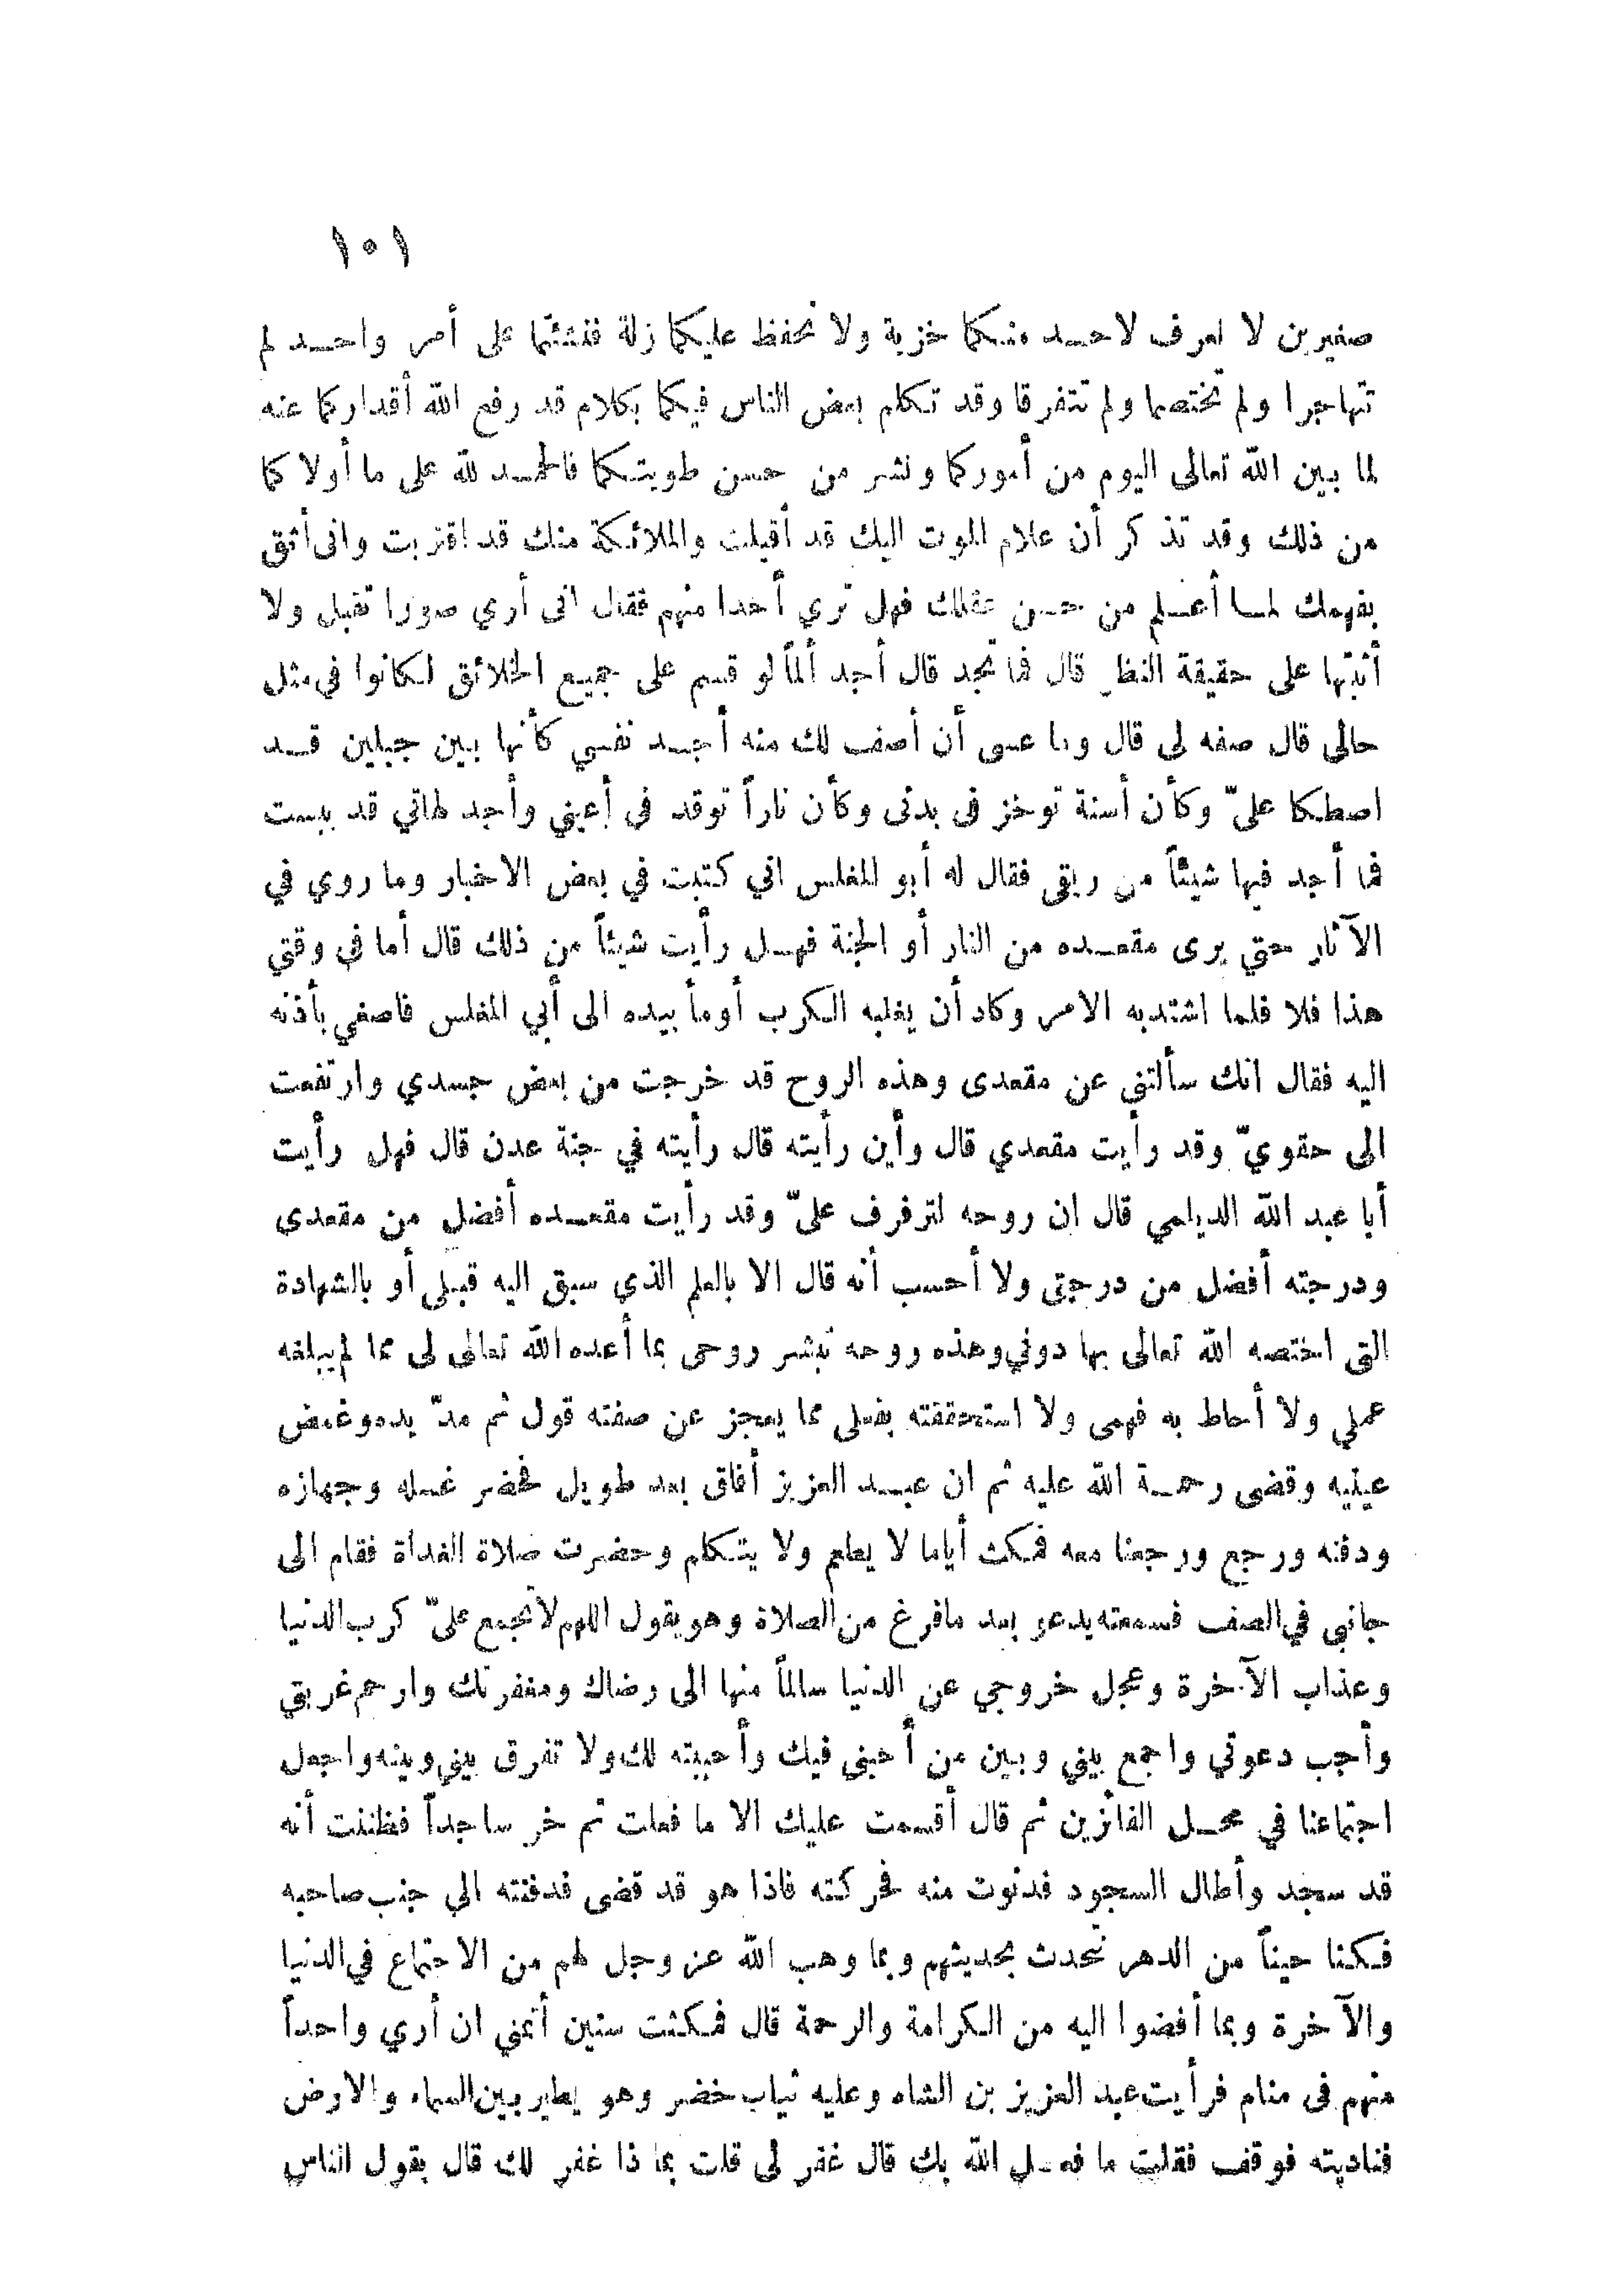 ١٥١
صغيرين لا نعرف لاحد منكما خزية ولا نحفظ عليكما زلة فنشئتما على أمر واحد لم
تتهاجرا ولم تختصما ولم تتفرقا وقد تكلم بعض الناس فيكما بكلام قد رفع الله أقداركما عنه
لما بين الله تعالى اليوم من أموركما ونشر من حسن طويتكما فالحمد لله على ما أولا كما
من ذلك وقد تذكر أن علام الموت اليك قد أقبلت والملائكة منك قد اقتربت واني أثق
بفهمك لما أعلم من حسن عقلك فهل تري أحدا منهم فقال اني أري صورا تقبل ولا
أثبتها على حقيقة النظر قال فما تجد قال أجد ألماً لو قسم على جميع الخلائق لكانوا في مثل
حالى قال صفه لى قال وما عسى أن أصف لك منه أجد نفسي كأنها بين جبلين قد
اصطكا علىّ وكأن أسنة توخز فى بدنى وكأن ناراً توقد فى أعيني وأجد لهاتي قد يبست
فما أجد فيها شيئاً من ريقى فقال له أبو المغلس اني كتبت في بعض الاخبار وما روي في
الآثار حتي يرى مقعده من النار أو الجنة فهل رأيت شيئاً من ذلك قال أما في وقتي
هذا فلا فلما اشتد به الامر وكاد أن يغلبه الكرب أومأ بيده الى أبي المغلس فاصغي بأذنه
اليه فقال انك سألتني عن مقعدى وهذه الروح قد خرجت من بعض جسدي وارتفعت
الى حقويّ وقد رأيت مقعدي قال وأين رأيته قال رأيته في جنة عدن قال فهل رأيت
أبا عبد الله الديلمي قال ان روحه لترفرف علىّ وقد رأيت مقعده أفضل من مقعدى
ودرجته أفضل من درجتى ولا أحسب أنه قال الا بالعلم الذي سبق اليه قبلى أو بالشهادة
التى اختصه الله تعالى بها دوني وهذه روحه تبشر روحى بما أعده الله تعالى لى مما لم يبلغه
عملي ولا أحاط به فهمى ولا استحققته بفعلى مما يعجز عن صفته قول ثم مدّ يده وغمض
عينيه وقضى رحمة الله عليه ثم ان عبد العزيز أفاق بعد طويل فحضر غسله وجهازه
ودفنه ورجع ورجعنا معه فمكث أياما لا يطعم ولا يتكلم وحضرت صلاة الغداة فقام الى
جانبي في الصف فسمعته يدعو بعد ما فرغ من الصلاة وهو يقول اللهم لا تجمع علىّ كرب الدنيا
وعذاب الآخرة وعجل خروجي عن الدنيا سالماً منها الى رضاك ومغفرتك وارحم غربتي
وأجب دعوتي واجمع بيني وبين من أحبنى فيك وأحببته لك ولا تفرق بيني وبينه واجعل
اجتماعنا في محل الفائزين ثم قال أقسمت عليك الا ما فعلت ثم خر ساجداً فظننت أنه
قد سجد وأطال السجود فدنوت منه فحركته فاذا هو قد قضى فدفنته الي جنب صاحبه
فكنا حيناً من الدهر نتحدث بحديثهم وبما وهب الله عز وجل لهم من الاجتماع في الدنيا
والآخرة وبما أفضوا اليه من الكرامة والرحمة قال فمكثت سنين أتمني ان أري واحداً
منهم فى منام فرأيت عبد العزيز بن الشاه وعليه ثياب خضر وهو يطير بين السماء والارض
فناديته فوقف فقلت ما فعل الله بك قال غفر لى قلت بما ذا غفر لك قال بقول الناس